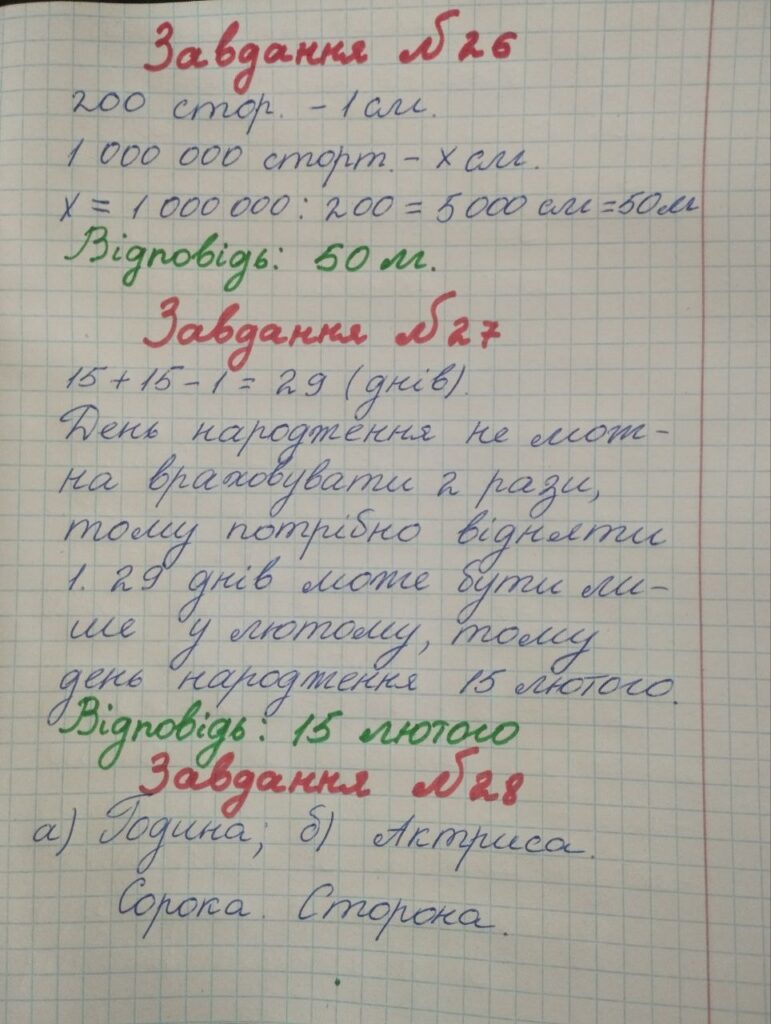 Завдання №26
200 стор. - 1 см.
1 000 000 сторт. - х см.
х = 1 000 000 : 200 = 5000 см = 50 м
Відповідь: 50 м.
Завдання №27
15 + 15 - 1 = 29 (днів).
День народження не мож-
на враховувати 2 рази,
тому потрібно відняти
1. 29 днів може бути ли-
ше у лютому, тому
день народження 15 лютого.
Відповідь: 15 лютого
Завдання №28
а) Година; б) Актриса.
Сорока. Сторона.